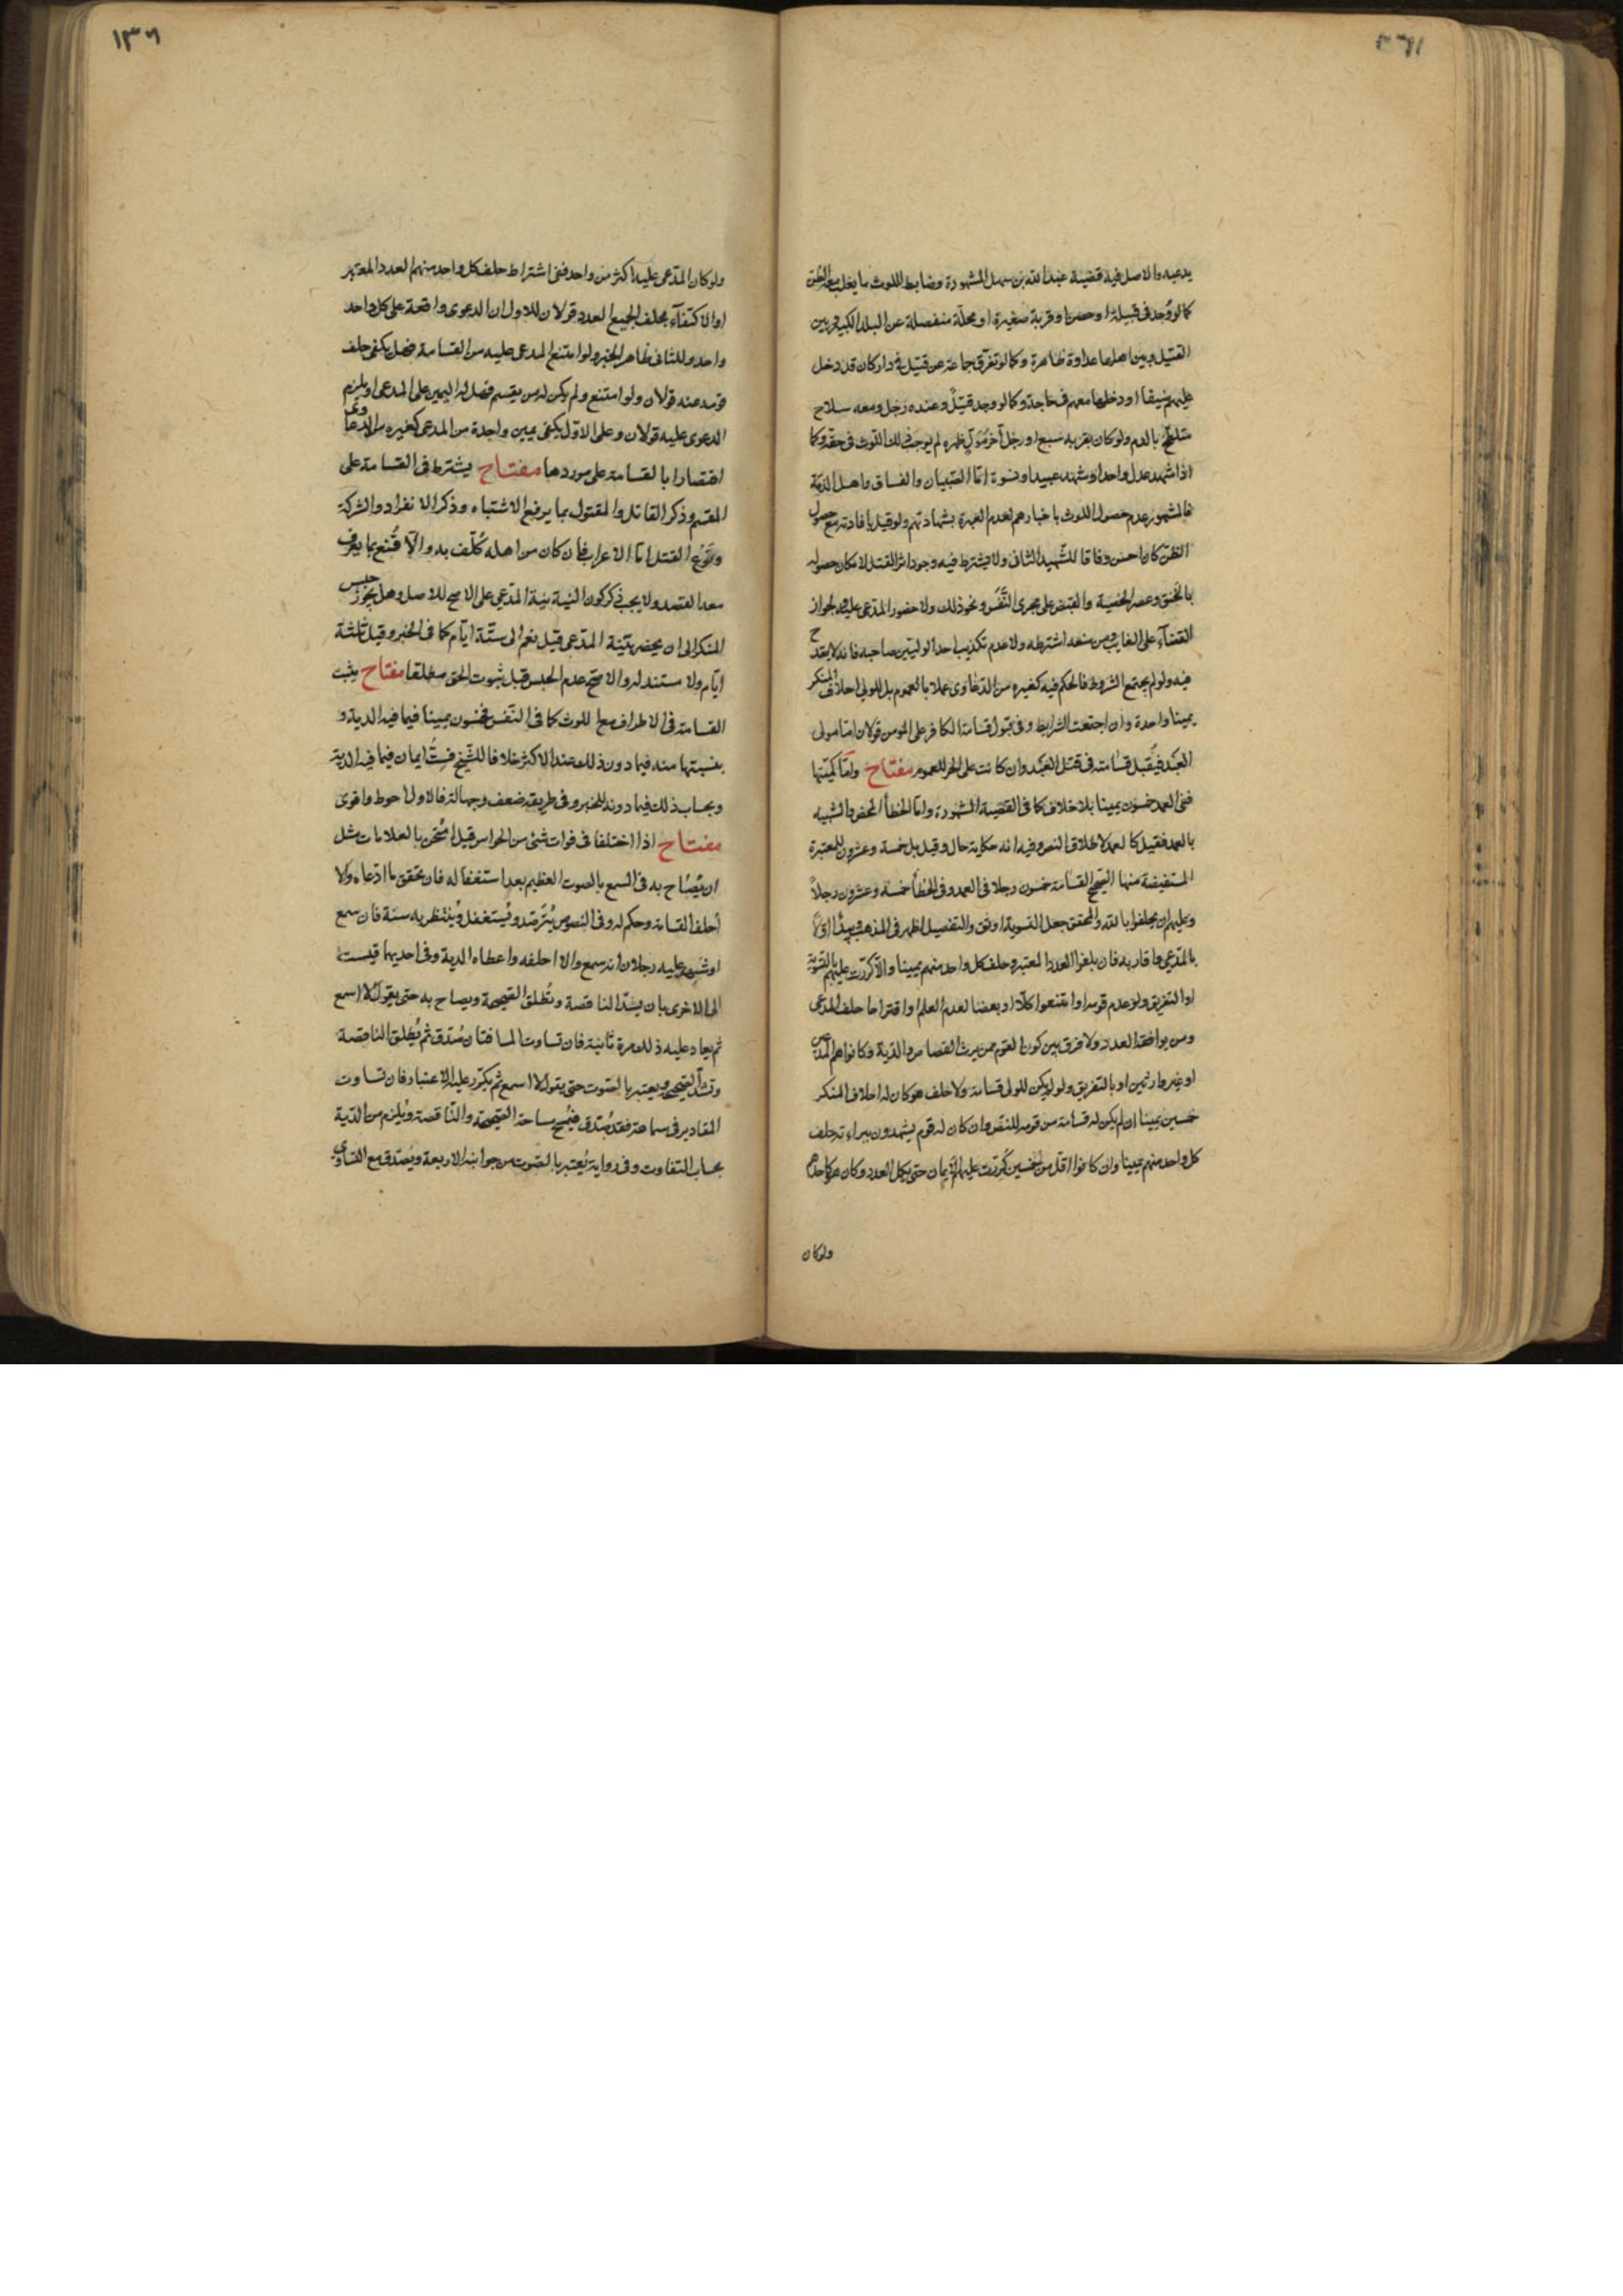 يدعيه والاصل فيه قضية عبد الله بن سهل المشهورة وضابط اللوث ما يغلب معه الظن
كما لو وُجد فى قبيلة او حصن او قرية صغيرة او محلّة منفصلة عن البلد الكبير وبين
القتيل وبين اهلها عداوة ظاهرة وكما لو تفرّق جماعة عن قتيل فى دار كان قد دخل
عليهم ضيفا او دخلها معهم فى حاجة وكما لو وجد قتيل وعنده رجل ومعه سلاح
متلطّخ بالدم ولو كان بقربه سبع او رجل آخر مُوَلٍّ ظهره لم يوجب ذلك اللوث فى حقه وكما
اذا شهد عدل واحد او شهد عبيد او نسوة امّا الصبيان والفساق واهل الذمّة
فالمشهور عدم حصول اللوث باخبارهم لعدم العبرة بشهادتهم ولو قيل بافادته مع حصول
الظنّ كان احسن وفاقا للشّهيد الثانى ولا يشترط فيه وجود اثر القتل لامكان حصوله
بالخنق وعصر الخصية والقبض على مجرى النَّفَس ونحو ذلك ولا حضور المدّعى عليه لجواز
القضآء على الغايب ومن منعه اشترطه ولا عدم تكذيب احد الوليّين صاحبه فانه لا يقدح
فيه ولو لم يجتمع الشروط فالحكم فيه كغيره من الدّعاوى عملا بالعموم بل للولى احلاف المنكر
يمينا واحدة وان اجتمعت الشرايط وفى قبول قسامة الكافر على المؤمن قولان امّا مولى
العبد فيُقبل قسامته فى قتل العَبْد وان كانت على الحر للعموم مفتاح وامّا كميّتها
ففى العمد خمسون يمينا بلا خلاف كما فى القضية المشهورة وامّا الخطأ المحض والشبيه
بالعمد فقيل كالعمد لاطلاق النص وفيه انه حكاية حال وقيل بل خمسة وعشرون للمعتبرة
المستفيضة منها الصّحيح القسامة خمسون رجلا فى العمد وفى الخطأ خمسة وعشرون رجلاً
وعليهم ان يحلفوا بالله والمحقق جعل التسوية اوثق والتفصيل اظهر فى المذهب ويبدأ اوّلاً
بالمدّعى واقاربه فان بلغوا العدد المعتبر وحلف كل واحد منهم يمينا والّا كررت عليهم بالسّوية
او التفريق ولو عدم قومه او امتنعوا كلّا او بعضا لعدم العلم او اقتراحا حلف المدعى
ومن يوافقه العدد ولا فرق بين كون القوم ممن يرث القصاص او الدّية وكانوا هم المدّعين
او غير وارثين او بالتفريق ولو لم يكن للولى قسامة ولا حلف هو كان له احلاف المنكر
خمسين يمينا ان لم يكن له قسامة من قومه للنصّ وان كان له قوم يشهدون ببراءته حلف
كل واحد منهم يمينا وان كانوا اقل من الخمسين كُرّرت عليهم الأيمان حتى يكمل العدد وكان هو كاحدهم
ولو كان
١٣٦
ولو كان المدّعى عليه اكثر من واحد ففى اشتراط حلف كل واحد منهم العدد المعتبر
او الاكتفآء بحلف الجميع العدد قولان للاول ان الدعوى واقعة على كل واحد
واحد وللثانى ظاهر الخبر ولو امتنع المدعى عليه من القسامة فهل يكفى حلف
قومه عنه قولان ولو امتنع ولم يكن له من يقسم فهل له اليمين على المدعى او يلزم
الدعوى عليه قولان وعلى الاوّل يكفى يمين واحدة من المدعى كغيره من الدعاوى
اقتصارا بالقسامة على موردها مفتاح يشترط فى القسامة على
المقسم وذكر القاتل والمقتول بما يرفع الاشتباه وذكر الانفراد والشركة
ونَوْع القتل امّا الاعراب فأن كان من اهله كُلّف به والّا قُنع بما يعرف
معه القصد ولا يجب ذكر كون النية نية المدّعى على الاصح للاصل وهل يجوز حبس
المنكر الى ان يحضر بيّنة المدّعى قيل نعم الى ستّة ايّام كما فى الخبر وقيل ثلثة
ايّام ولا مستند له والاصحّ عدم الحبس قبل ثبوت الحق مطلقا مفتاح يثبت
القسامة فى الاطراف مع اللوث كما فى النّفس خمسون يمينا فيما فيه الدية و
بنسبتها منه فيما دون ذلك عند الاكثر خلافا للشّيخ فستُّ ايمان فيما فيه الدية
وبحساب ذلك فيما دونه للخبر وفى طريقه ضعف وجهالة فالاول احوط واقوى
مفتاح اذا اختلفا فى فوات شئ من الحواس قيل امتُحن بالعلامات مثل
ان يُصاح به فى السمع بالصوت العظيم بعد استغفاله فان تحقق ما ادّعاه والّا
أحلف القسامة وحكم له وفى النصوص يُترصّد ويُستغفل ويُنتظر به سنة فان سمع
او شهد عليه رجلان انه سمع والا احلفه واعطاه الدية وفى احديهما قيست
الى الاخرى بان يشدّ الناقصة وتُطلق الصّحيحة ويصاح به حتى يقول لا اسمع
ثم يعاد عليه ذلك مرة ثانية فان تساوت المسافتان صُدّق ثم يُطلق الناقصة
وتشدّ الصّحيحة ويعتبر بالصّوت حتى يقول لا اسمع ثم يكرّر عليه الاعتبار فان تساوت
المقادير فى سماعه فقد صُدّق فيُمسح مساحة الصّحيحة والنّاقصة ويُلزم من الدّية
بحساب التفاوت وفى رواية يُعتبر بالصّوت من جوانبه الاربعة ويُصدّق مع التساوى